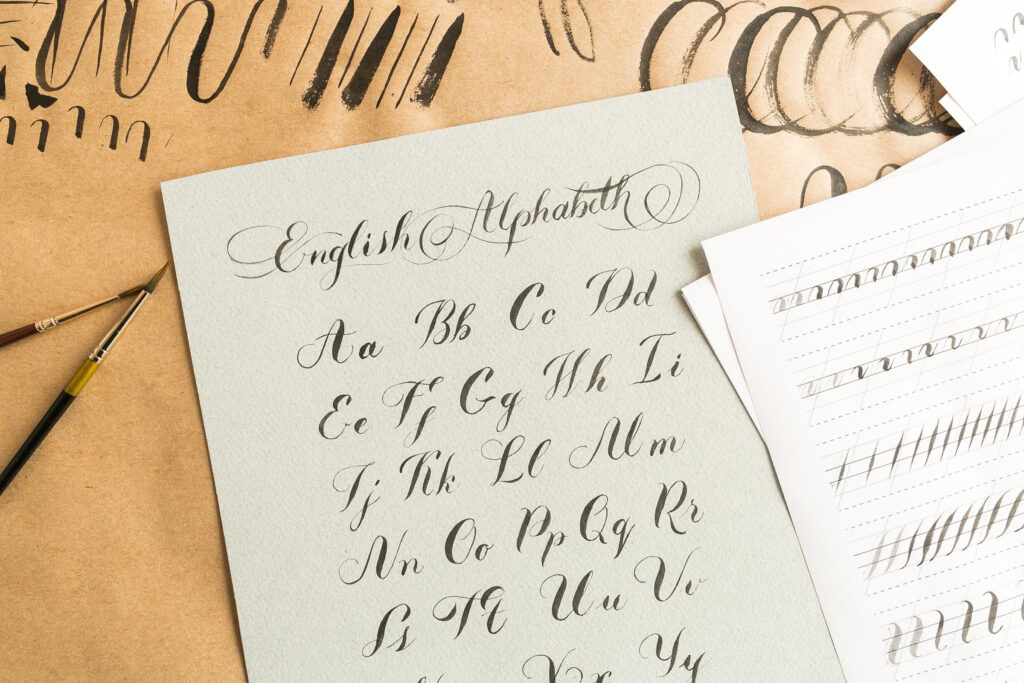 English Alphabeth
Aa Bb Cc Dd
Ee Ff Gg Hh Ii
Jj Kk Ll Mm
Nn Oo Pp Qq Rr
Ss Tt Uu Vv
Xx Yy